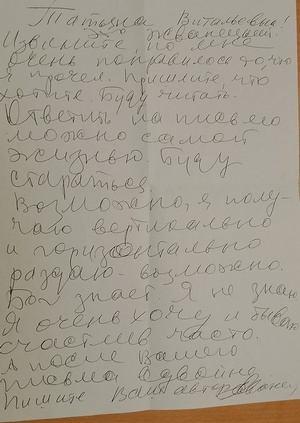 Татьяна Витальевна!
Это Жванецкий.
Извините, но мне
очень понравилось то, что
я прочел. Пришлите, что
хотите. Буду читать.
Ответить на письмо
можно самой
жизнью. Буду
стараться.
Возможно, я полу-
чаю вертикально
и горизонтально
раздаю. возможно.
Бог знает. Я не знаю
Я очень хочу и бываю
счастлив часто.
А после Вашего
письма вдвойне.
Пишите Ваш автор